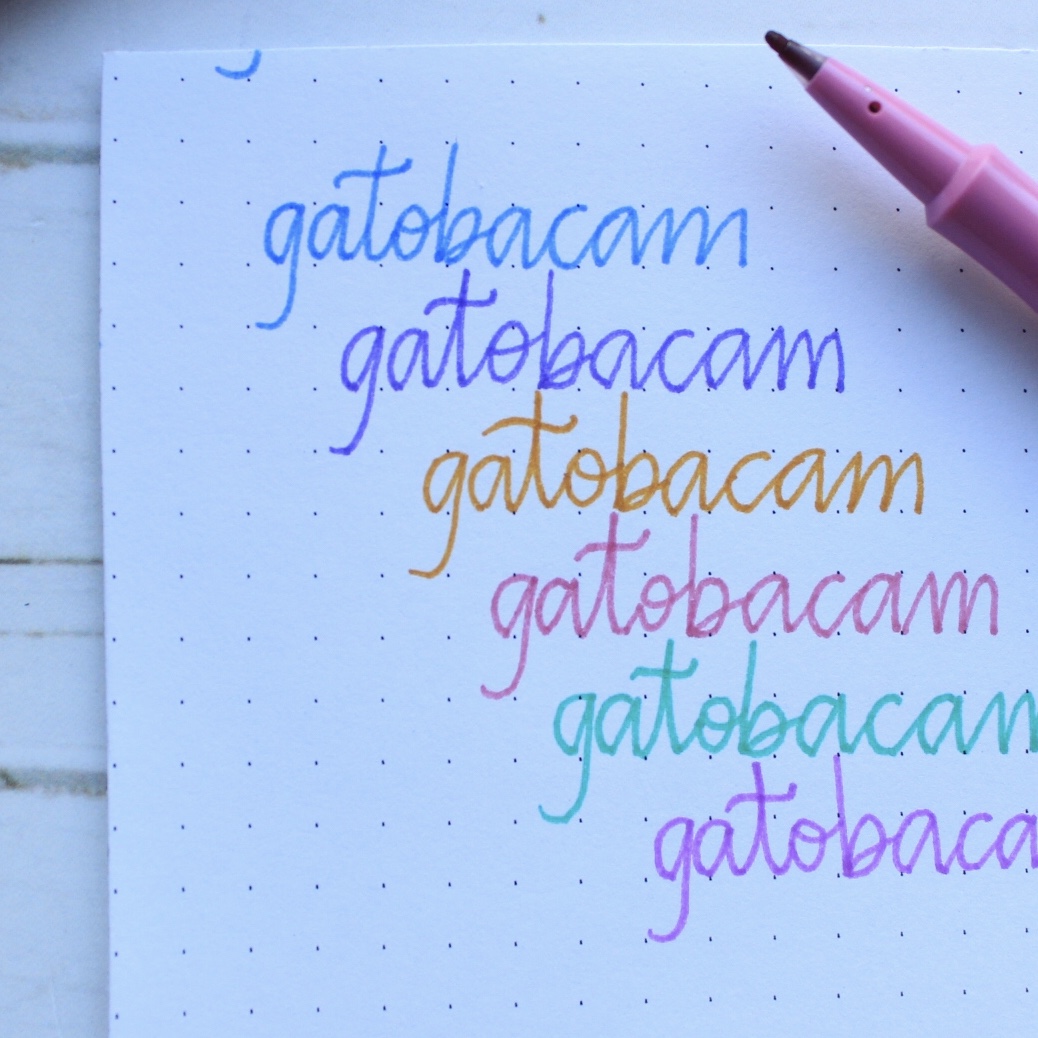 gatobacam
gatobacam
gatobacam
gatobacam
gatobacam
gatobaca